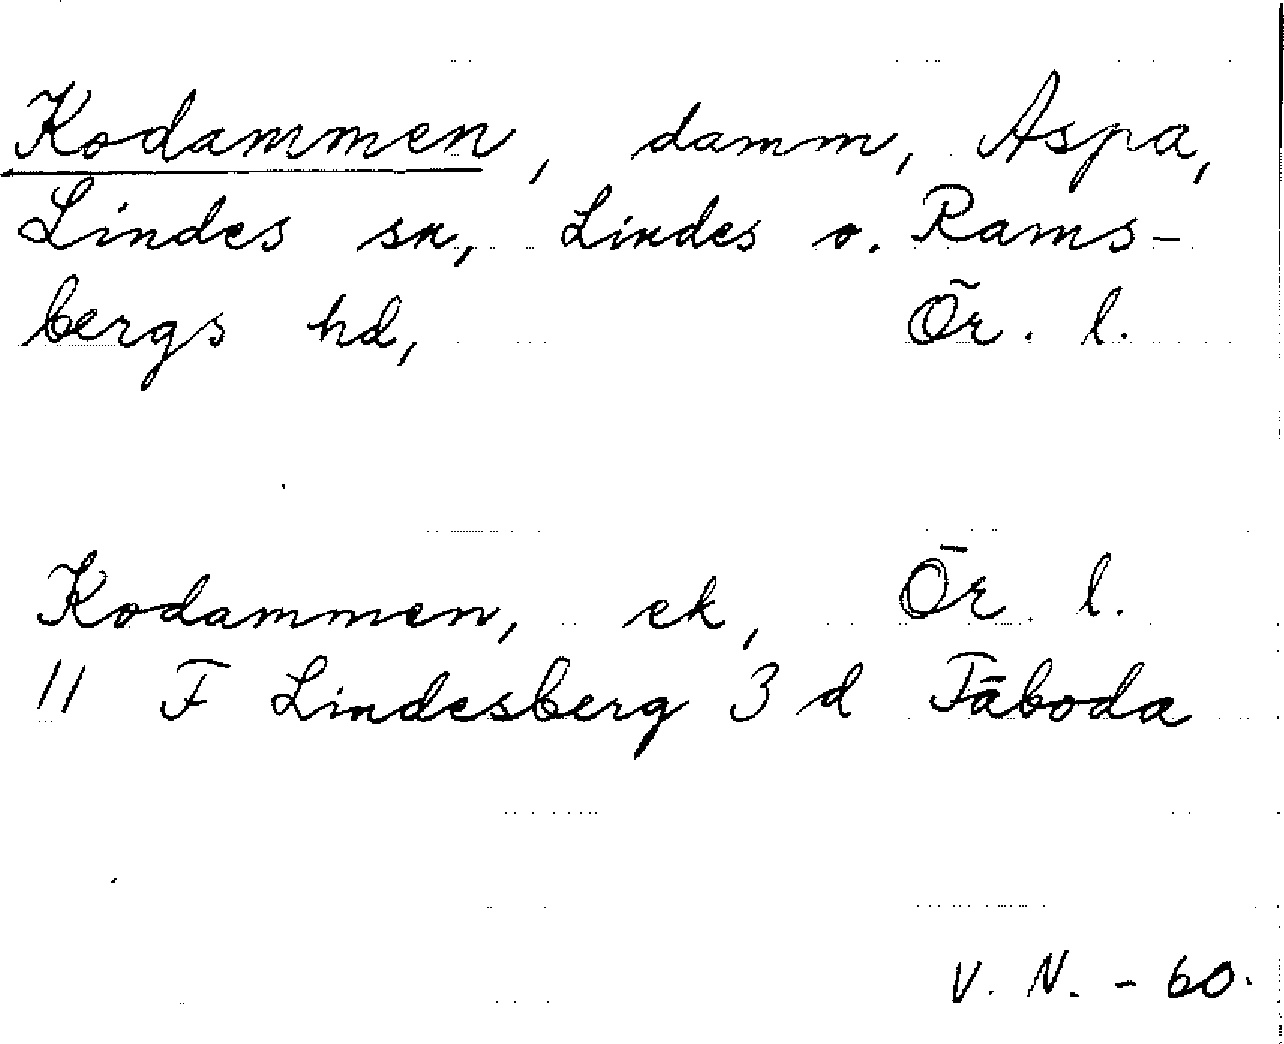 Kodammen, damm, Aspa,
Lindes sn, Lindes o. Rams-
bergs hd, Ör. l.
Kodammen, ek, Ör l.
11 F Lindesberg 3 d Fäboda
V. N. - 60.